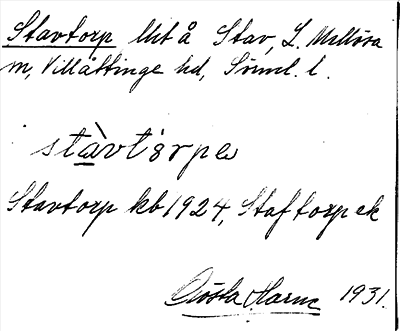 Stavtorp lht å Stav, L. Mellösa
sn, Villåttinge hd, Söml. l.
i stàvtórpa
Stavtorp kb 1924, Staftorp ek
Gösta Harne 1931.